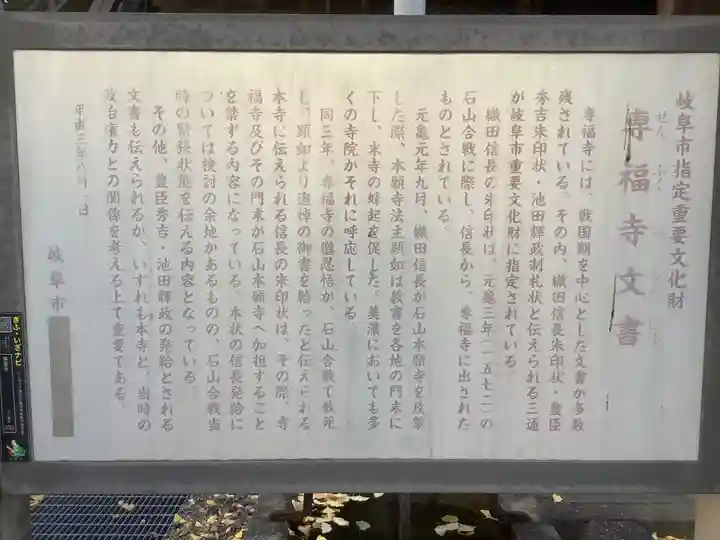 岐阜市指定重要文化財
せん ふく じ
専福寺文書
専福寺には、戦国期を中心とした文書が多数
残されている。その内、織田信長朱印状・豊臣
秀吉朱印状・池田輝政制札状と伝えられる三通
が岐阜市重要文化財に指定されている
織田信長の朱印状は、元亀三年(一五七二)の
石山合戦に際し、信長から、専福寺に出された
ものとされている。
元亀元年九月、織田信長が石山本願寺を攻撃
した際、本願寺法主顕如は教書を各地の門末に
下し、末寺の蜂起を促した。美濃においても多
くの寺院がそれに呼応している。
同三年、専福寺の忍悟が、石山合戦で戦死
し、顕如より追悼の御書を給ったと伝えられる
本寺に伝えられる信長の朱印状は、その際、寺
福寺及びその門末が石山本願寺へ加担すること
を禁ずる内容になっている。本状の信長発給に
ついては検討の余地があるものの、石山合戦当
時の緊張状態を伝える内容となっている
その他、豊臣秀吉・池田輝政の発給とされる
文書も伝えられるが、いずれも本寺と、当時の
政治権力との関係を考える上で重要である。
平成三年八月一日
岐阜市
ぎふ・いざナビ